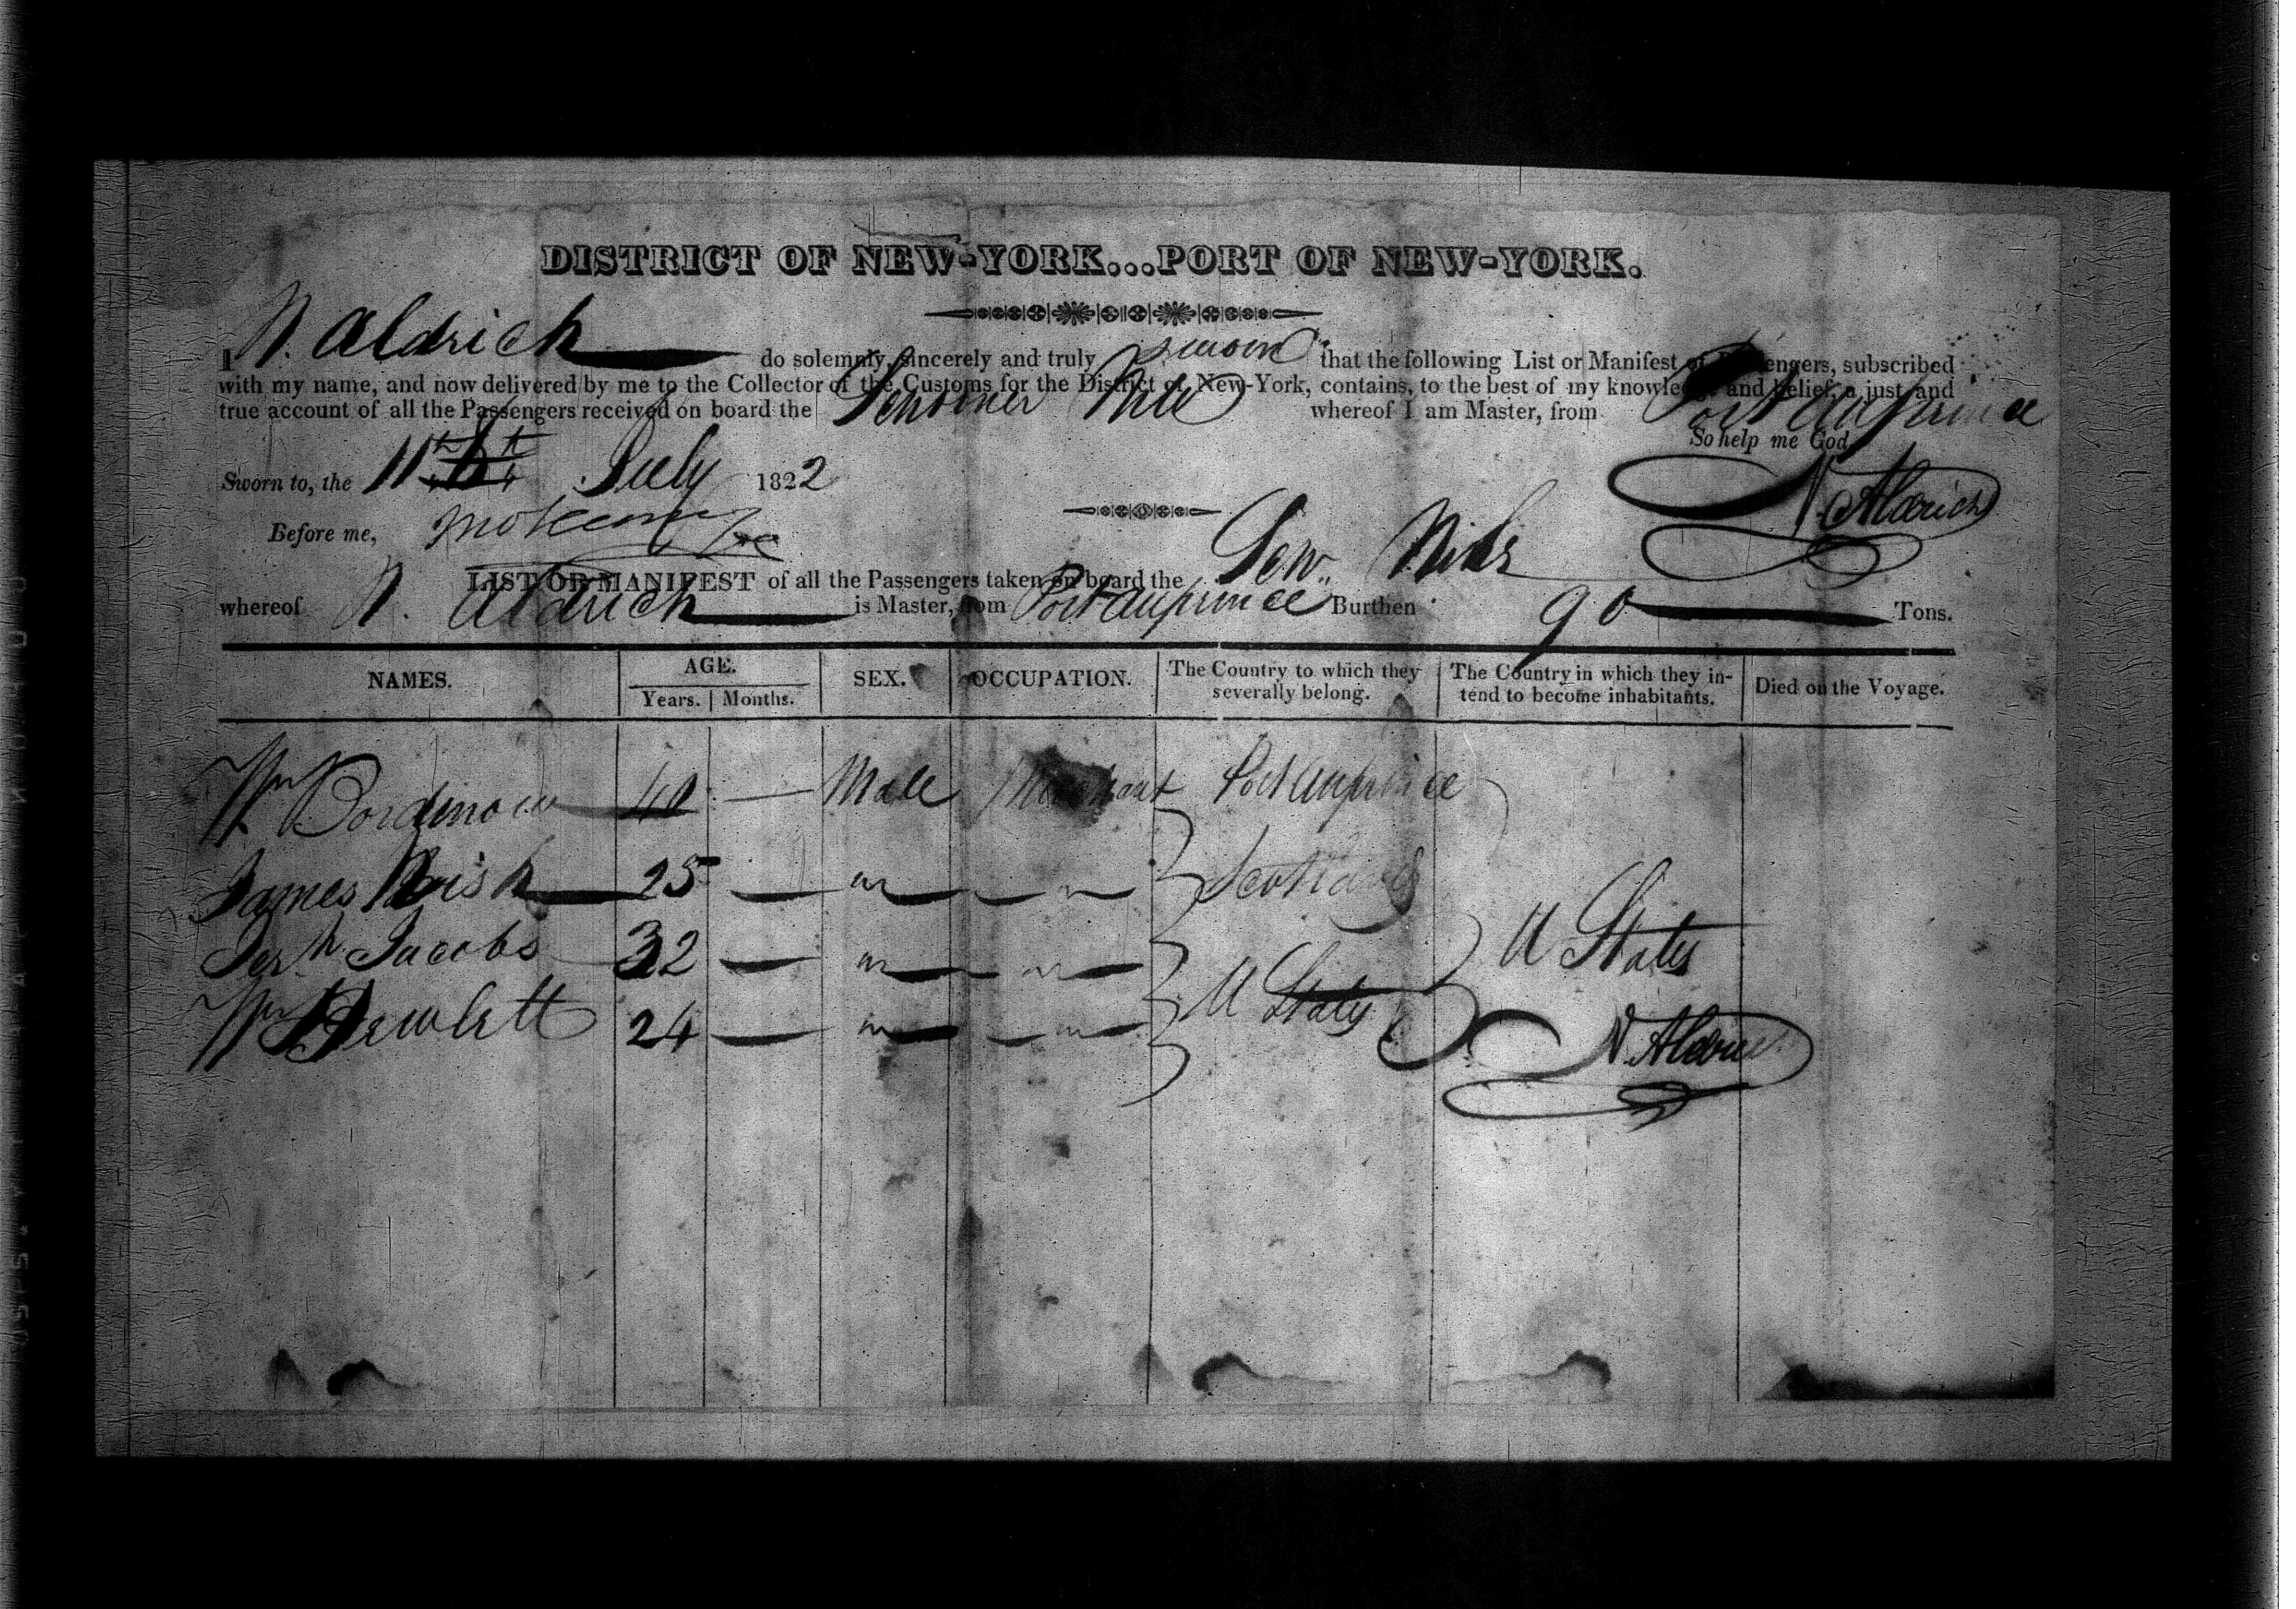 DISTRICT OF NEW-YORK...PORT OF NEW-YORK.
I N. Aldrich do solemnly, sincerely and truly swear that the following List or Manifest of Passengers, subscribed
with my name, and now delivered by me to the Collector of the Customs for the District of New-York, contains, to the best of my knowledge and belief, a just and
true account of all the Passengers received on board the Schooner whereof I am Master, from Port au prince
So help me God
Sworn to, the 11th July 1822
N. Aldrich
Before me,
LIST OR MANIFEST of all the Passengers taken on board the
whereof N. Aldrich is Master, from Port au prince Burthen 90 Tons.
NAMES. AGE. SEX. OCCUPATION. The Country to which they severally belong. The Country in which they intend to become inhabitants. Died on the Voyage.
Years. Months.
Wm 40 — Male Merchant Port au prince
James 25 — " " Scotland
Jacobs 32 — " " U States
Wm Hewlett 24 — " " U States
N. Aldrich